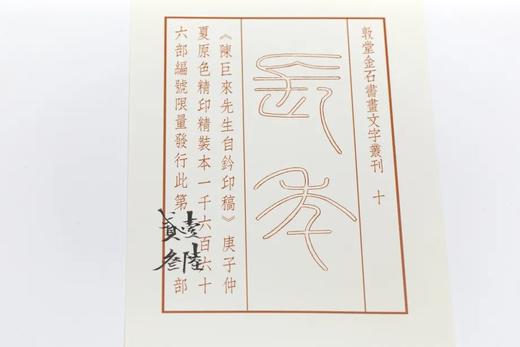 敦堂金石書畫文字叢刊 十
《陳巨來先生自鈐印稿》庚子仲
夏原色精印精裝本一千六百六十
六部編號限量發行此第 部
壹陸
貳叁